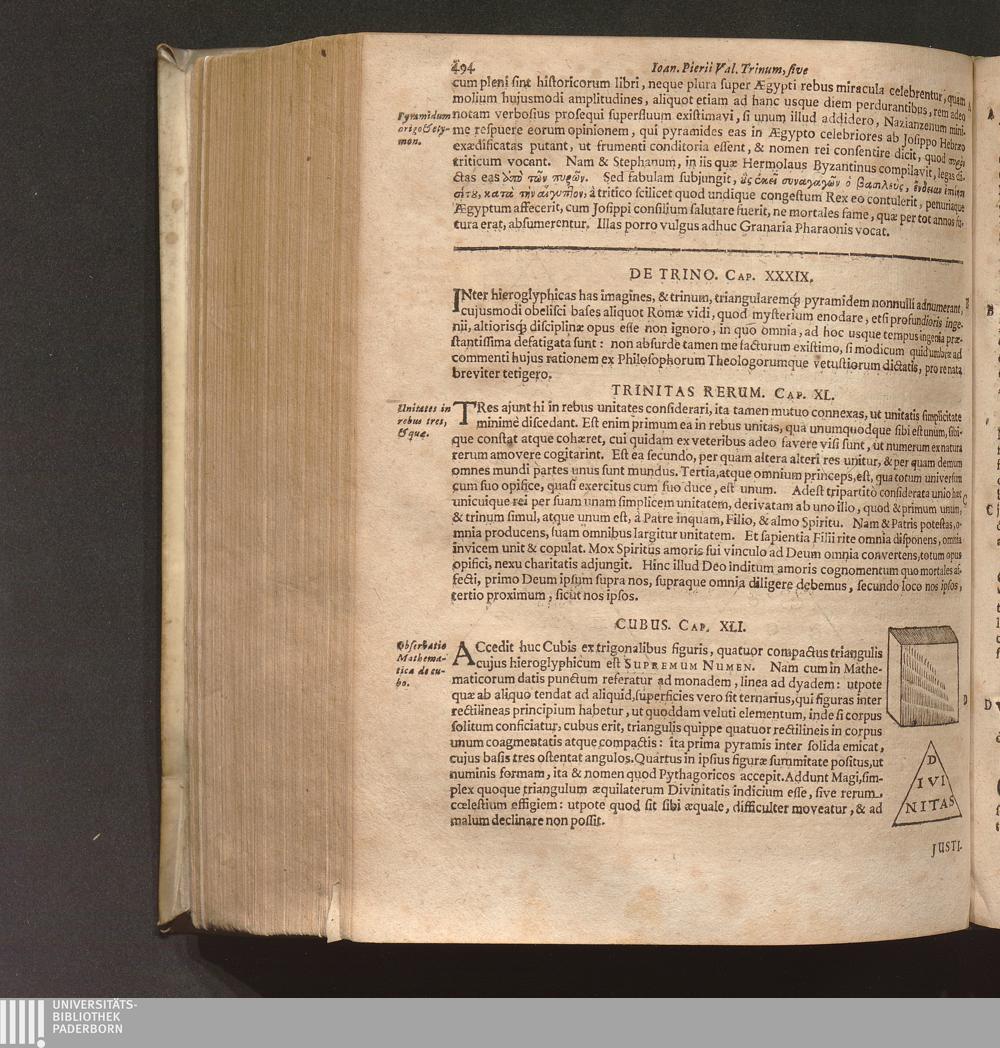 494
Ioan. Pierii Val. Trinum, ſive
cum pleni ſint hiſtoricorum libri, neque plura ſuper Ægypti rebus miracula celebrentur, quam
molium hujusmodi amplitudines, aliquot etiam ad hanc usque diem perdurantibus, rem adeo
Pyramidum
origo & ety-
mon.
notam verboſius proſequi ſuperfluum exiſtimavi, ſi unum illud addidero, Nazianzenum mini-
me reſpuere eorum opinionem, qui pyramides eas in Ægypto celebriores ab Joſippo Hebræo
exædificatas putant, ut frumenti conditoria eſſent, & nomen rei conſentire dicit, quod
triticum vocant. Nam & Stephanum, in iis quæ Hermolaus Byzantinus compilavit, legas di-
ctas eas ἀπὸ τῶν πυρῶν. Sed fabulam ſubjungit, συναγαγὼν ὁ βασιλεὺς, ἔνδειαν
σίτȣ, κατὰ τὴν αἴγυπτον, à tritico ſcilicet quod undique congeſtum Rex eo contulerit, penuriaque
Ægyptum affecerit, cum Joſippi conſilium ſalutare fuerit, ne mortales fame, quæ per tot annos fu-
tura erat, abſumerentur. Illas porro vulgus adhuc Granaria Pharaonis vocat.
DE TRINO. CAP. XXXIX.
INter hieroglyphicas has imagines, & trinum, triangularemq; pyramidem nonnulli adnumerant,
cujusmodi obeliſci baſes aliquot Romæ vidi, quod myſterium enodare, etſi profundioris inge-
nii, altiorisq; diſciplinæ opus eſſe non ignoro, in quo omnia, ad hoc usque tempus ingenia præ-
ſtantiſſima defatigata ſunt: non abſurde tamen me facturum exiſtimo, ſi modicum quid umbræ ad
commenti hujus rationem ex Philoſophorum Theologorumque vetuſtiorum dictatis, pro re nata
breviter tetigero.
TRINITAS RERUM. CAP. XL.
Unitates in
rebus tres,
& quæ.
TRes ajunt hi in rebus unitates conſiderari, ita tamen mutuo connexas, ut unitatis ſimplicitate
minime diſcedant. Eſt enim primum ea in rebus unitas, qua unumquodque ſibi eſt unum, ſibi-
que conſtat atque cohæret, cui quidam ex veteribus adeo favere viſi ſunt, ut numerum ex natura
rerum amovere cogitarint. Eſt ea ſecundo, per quam altera alteri res unitur, & per quam demum
omnes mundi partes unus ſunt mundus. Tertia, atque omnium princeps, eſt, qua totum univerſum
cum ſuo opifice, quaſi exercitus cum ſuo duce, eſt unum. Adeſt tripartitò conſiderata unio hæc
unicuique rei per ſuam unam ſimplicem unitatem, derivatam ab uno illo, quod & primum unum,
& trinum ſimul, atque unum eſt, à Patre inquam, Filio, & almo Spiritu. Nam & Patris poteſtas, o-
mnia producens, ſuam omnibus largitur unitatem. Et ſapientia Filii rite omnia diſponens, omnia
invicem unit & copulat. Mox Spiritus amoris ſui vinculo ad Deum omnia convertens, totum opus
opifici, nexu charitatis adjungit. Hinc illud Deo inditum amoris cognomentum quo mortales af-
fecti, primo Deum ipſum ſupra nos, ſupraque omnia diligere debemus, ſecundo loco nos ipſos,
tertio proximum, ſicut nos ipſos.
CUBUS. CAP. XLI.
Obſervatio
Mathema-
tica de cu-
bo.
ACcedit huc Cubis ex trigonalibus figuris, quatuor compactus triangulis
cujus hieroglyphicum eſt SUPREMUM NUMEN. Nam cum in Mathe-
maticorum datis punctum referatur ad monadem, linea ad dyadem: utpote
quæ ab aliquo tendat ad aliquid, ſuperficies vero ſit ternarius, qui figuras inter
rectilineas principium habetur, ut quoddam veluti elementum, inde ſi corpus
ſolitum conficiatur, cubus erit, triangulis quippe quatuor rectilineis in corpus
unum coagmentatis atque compactis: ita prima pyramis inter ſolida emicat,
cujus baſis tres oſtentat angulos. Quartus in ipſius figuræ ſummitate poſitus, ut
numinis formam, ita & nomen quod Pythagoricos accepit. Addunt Magi, ſim-
plex quoque triangulum æquilaterum Divinitatis indicium eſſe, ſive rerum
cœleſtium effigiem: utpote quod ſit ſibi æquale, difficulter moveatur, & ad
malum declinare non poſſit.
D
IVI
NITAS
JUSTI-
UNIVERSITÄTS-
BIBLIOTHEK
PADERBORN